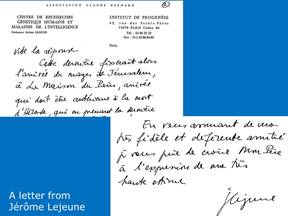 ASSOCIATION CLAUDE BERNARD
CENTRE DE RECHERCHES
GÉNÉTIQUE HUMAINE ET
MALADIES DE L'INTELLIGENCE
Professeur Jérôme LEJEUNE
INSTITUT DE PROGENÈSE
75270 PARIS Cedex 06
Paris,
vite la réponse.
Cette dernière fixerait alors
l'arrivée des mages de Jérusalem,
à La Maison du Pain, arrivée
qui doit être antérieure à la mort
d'Hérode, qui en prenant la dernière
En vous assurant de ma
très fidèle et déférente amitié
je vous prie de croire Mon Père
à l'expression de ma très
haute estime
JLejeune
A letter from
Jérôme Lejeune